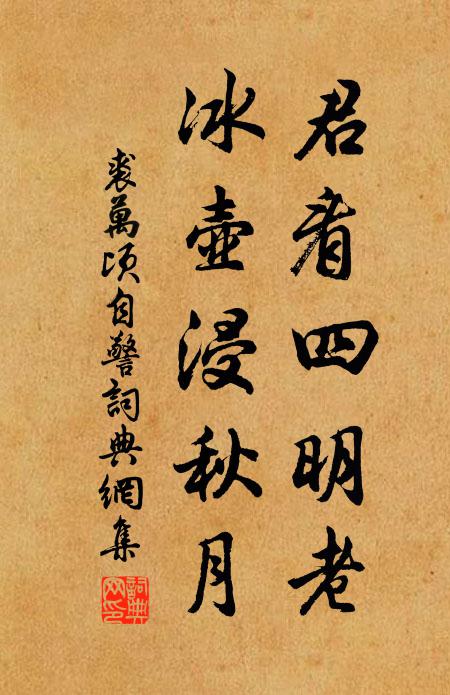 君看四明老
冰壺浸秋月
裘萬頃自警詞典網集
詞典
网印